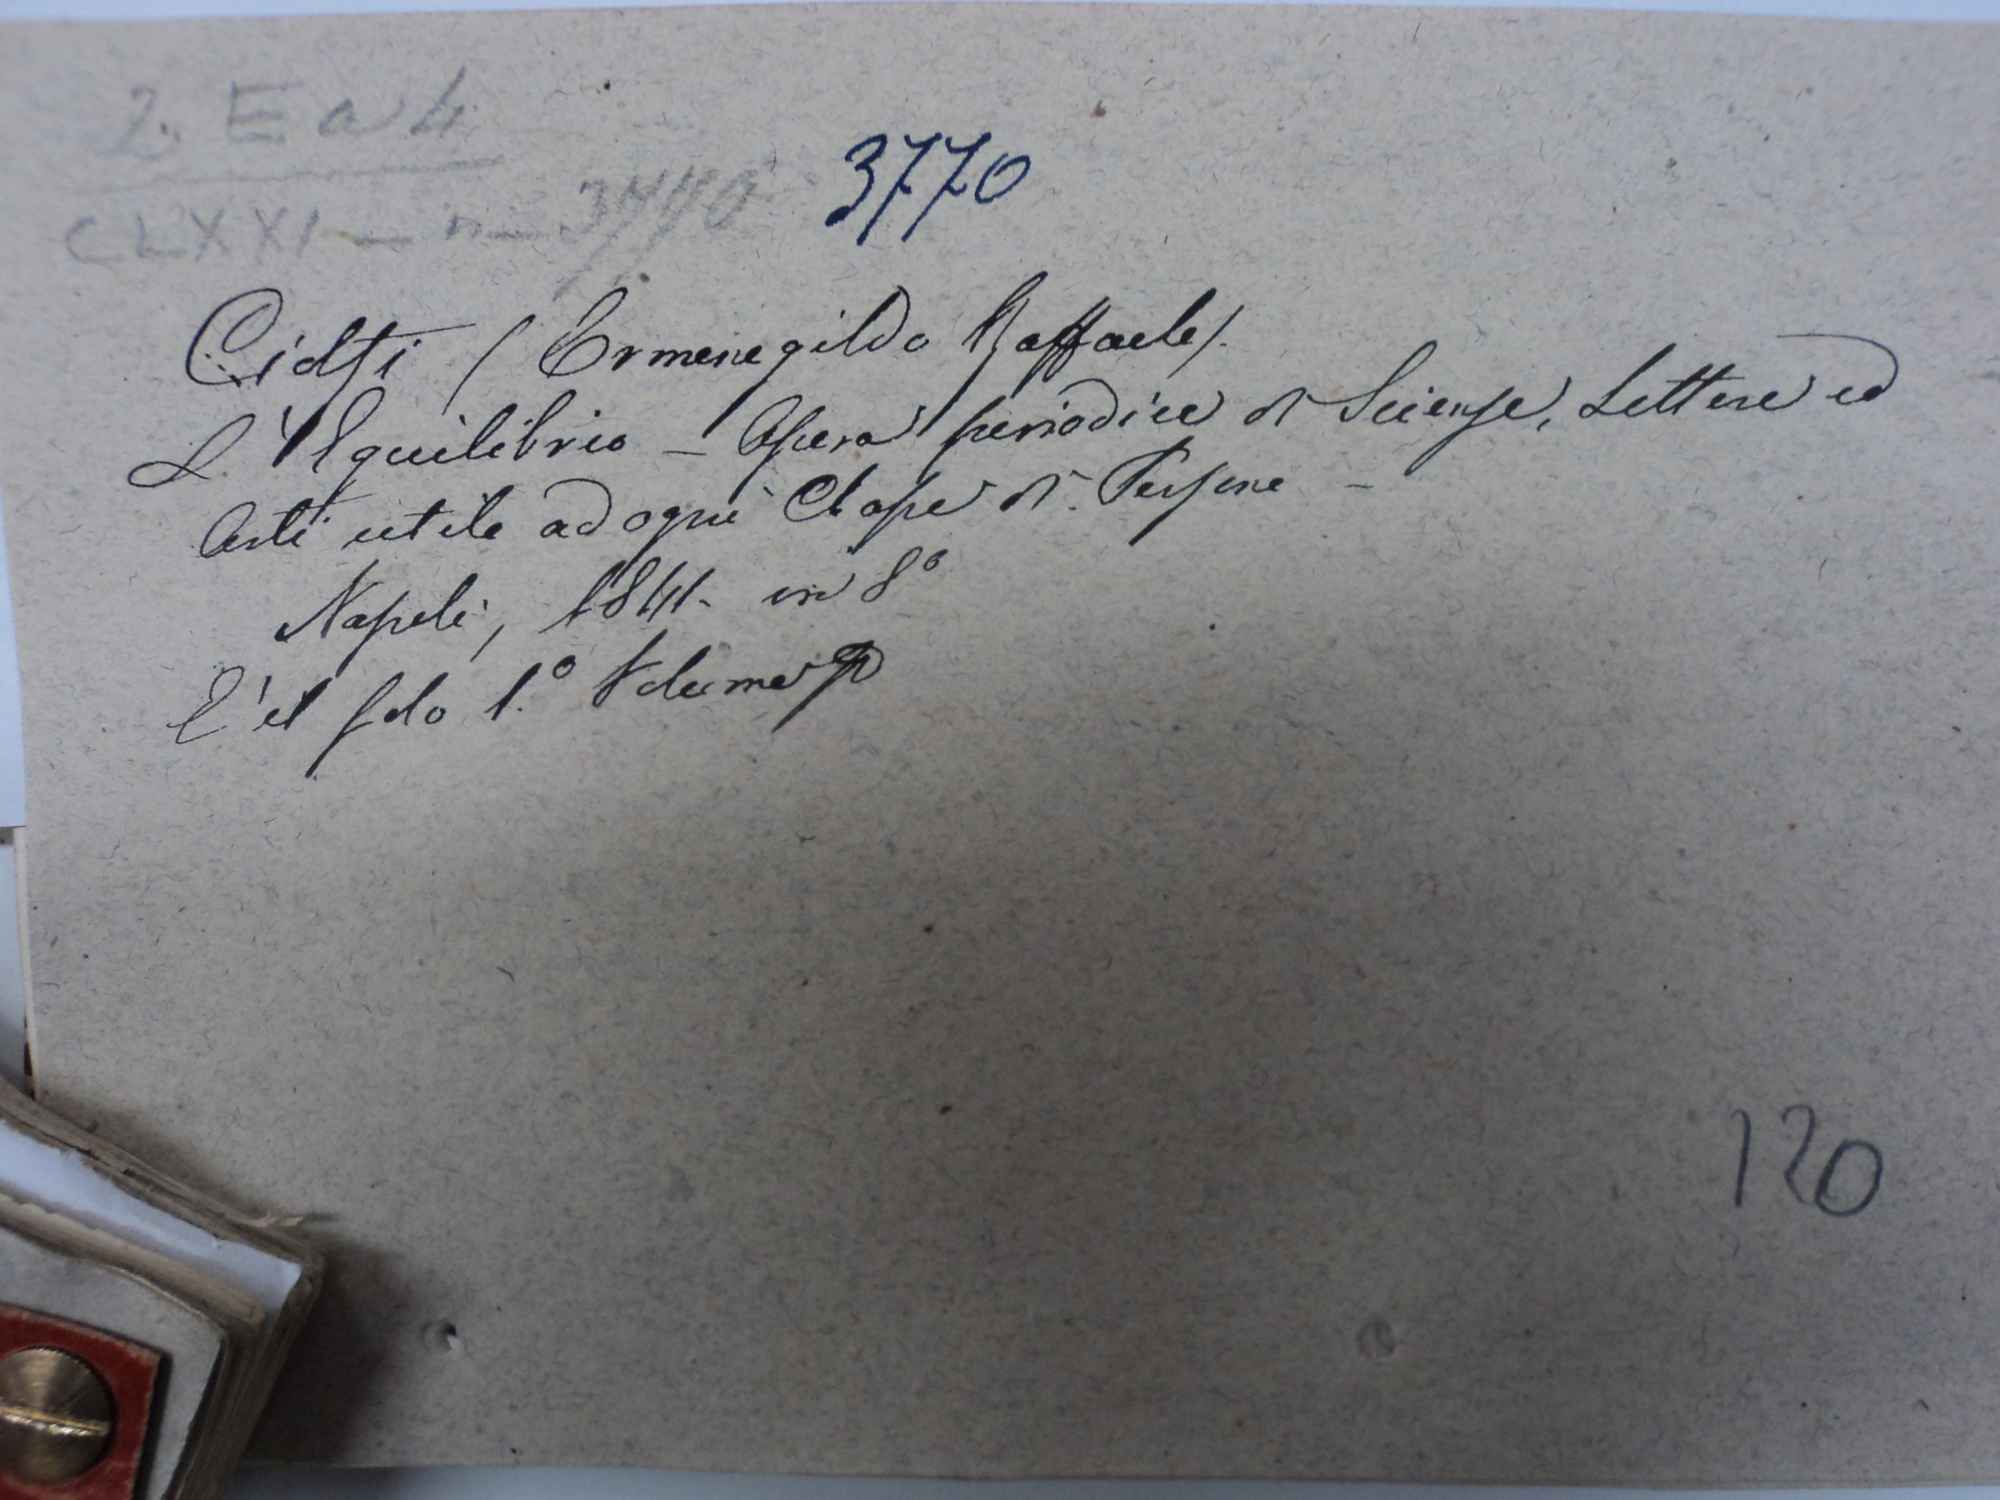 2. E a 4
CLXXI - n - 3770
3770
(Ermenegildo Raffaele).
L'Equilibrio - Opera periodica di Scienze, Lettere ed
Arti utile ad ogni Classe di Persone -
Napoli, 1841. in 8º
E' il solo 1.º Volume
120